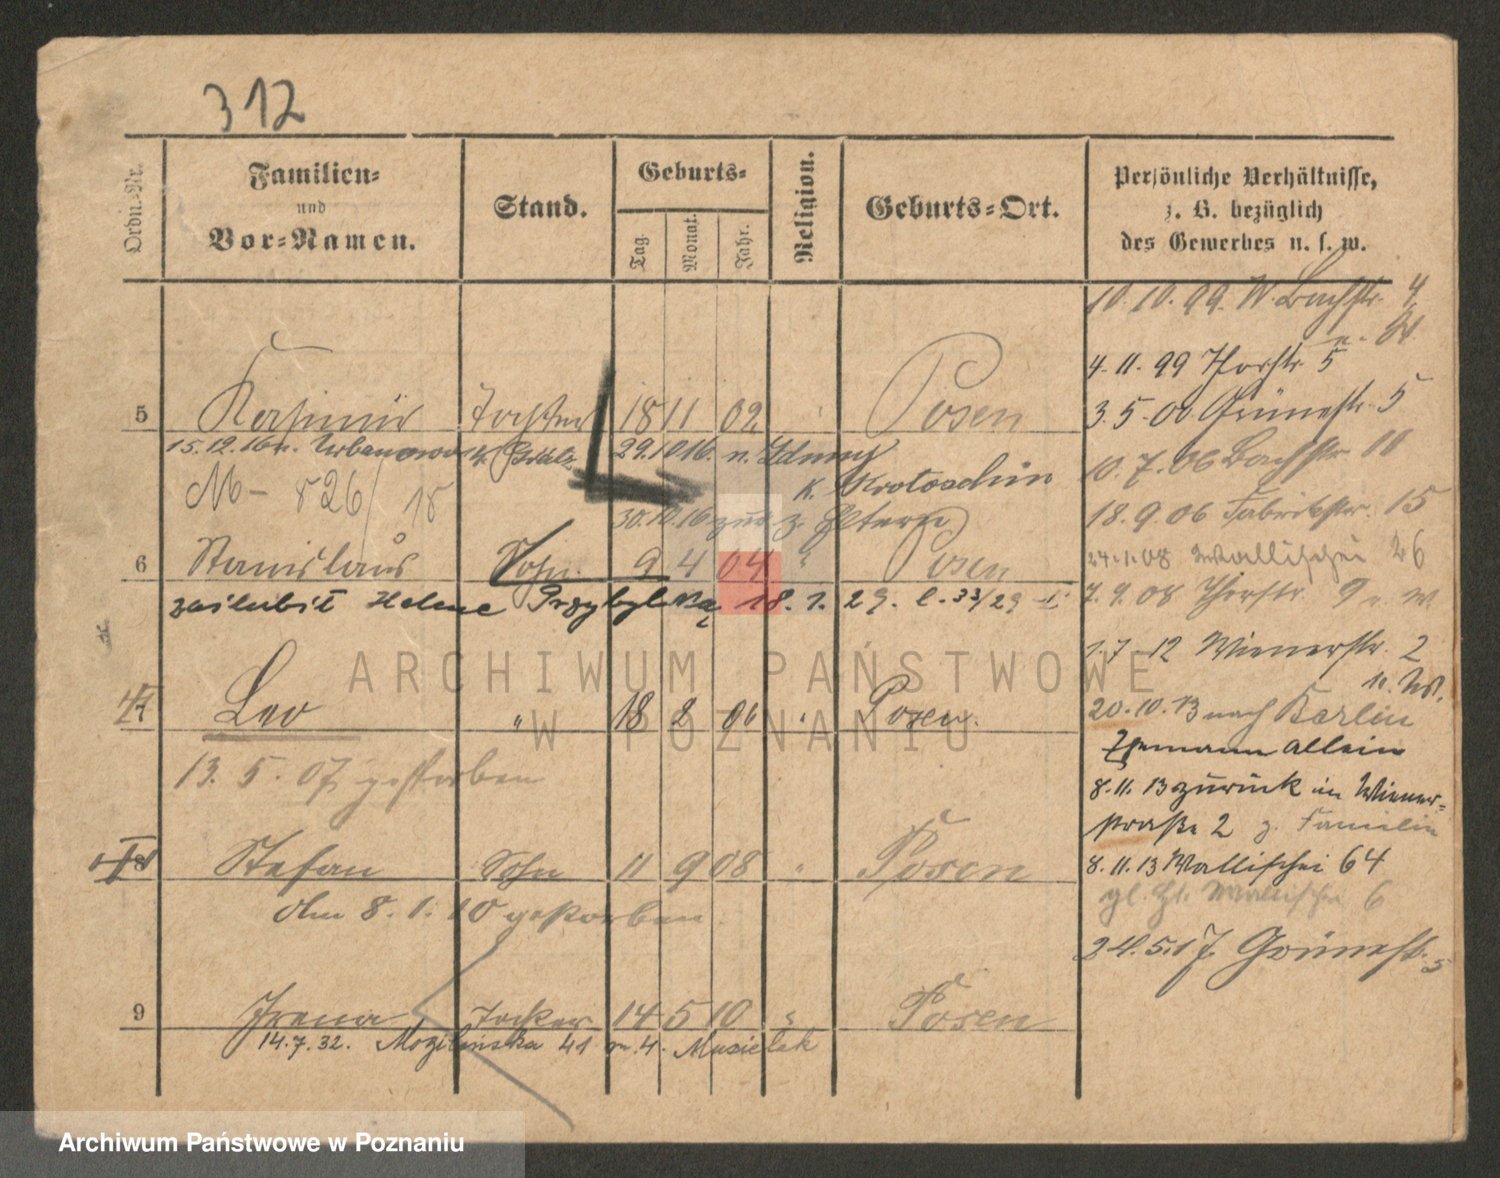 312
Ordn.-Nr.
Familien-
und
Vor-Namen.
Stand.
Geburts-
Tag.
Monat.
Jahr.
Religion.
Geburts-Ort.
Persönliche Verhältnisse,
z. B. bezüglich
des Gewerbes u. s. w.
10.10.99. W. Bachstr. 4
4.11.99 Thorstr. 5
3.5.00 Grünestr. 5
10.7.06 Bachstr.
18.9.06 Fabrikstr. 15
24.1.08 Wallischei 26
7.9.08 Thorstr. 9
1.7.12 Wienerstr. 2
20.10.13 nach Berlin
Ehemann allein
8.11.13 zurück in Wiener-
straße 2 z. Familie
8.11.13 Wallischei 64
Wallischei 6
24.5.17. Grünestr. 5
5 Kasimir 18 11 02 Posen
15.12.16 n. 29.10.16. n.
K. Krotoschin
M - 826/18
30.10.16 zur. z. Eltern
6 Stanislaus Sohn 9 4 04 " Posen
zaślubił Helenę Przybylską 18.1.29. l. 33/29
7 Leo " 18 2 06 " Posen.
13.5.07 gestorben
8 Stefan Sohn 11 9 08 " Posen
Am 8.1.10 gestorben
9 Irena 14 5 10 " Posen
14.7.32. 41 m. 4. Musielak
ARCHIWUM PAŃSTWOWE
W POZNANIU
Archiwum Państwowe w Poznaniu